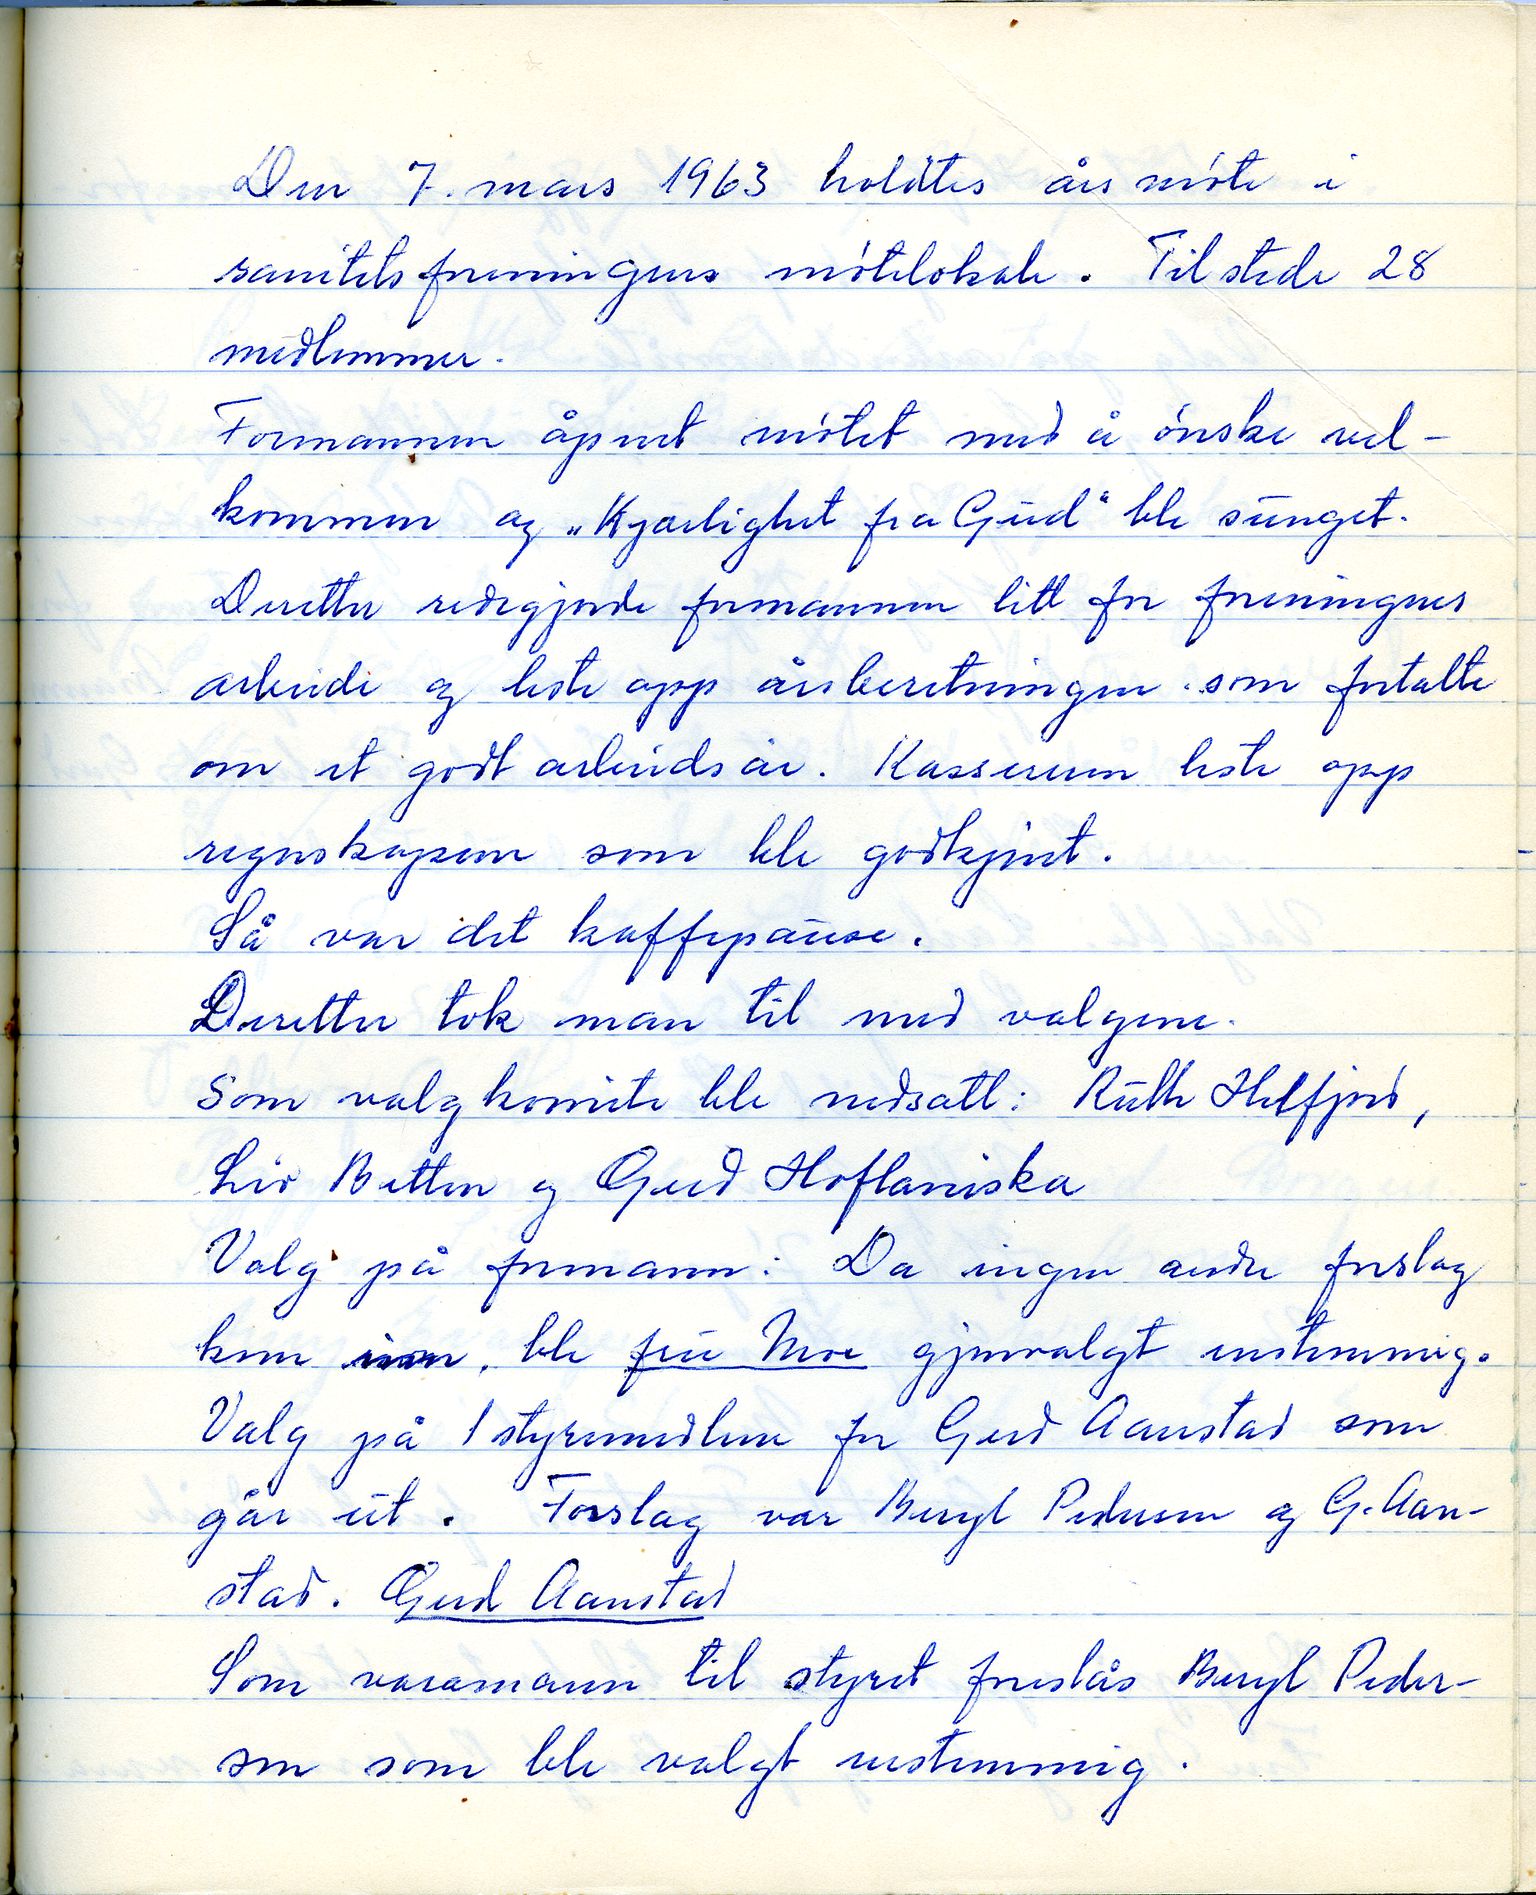 Den 7. mars 1963 holdtes årsmöte i
sanitetsforeningens mötelokale. Tilstede 28
medlemmer.
Formannen åpnet mötet med å önske vel-
kommen og „Kjærlighet fra Gud" ble sunget.
Deretter redegjorde formannen litt for foreningens
arbeide og leste opp årsberetningen som fortalte
om et godt arbeidsår. Kassereren leste opp
regnskapene som ble godkjent.
Så var det kaffepause.
Deretter tok man til med valgene.
Som valgkomite ble nedsatt: Ruth Helfjord,
Liv Betten og Gerd Hoflaniska
Valg på formann: Da ingen andre forslag
kom inn, ble fru Moe gjenvalgt enstemmig.
Valg på 1 styremedlem for Gerd Aanstad som
går ut. Forslag var Beryl Pedersen og G. Aan-
stad. Gerd Aanstad
Som varamann til styret foreslås Beryl Peder-
sen som ble valgt enstemmig.